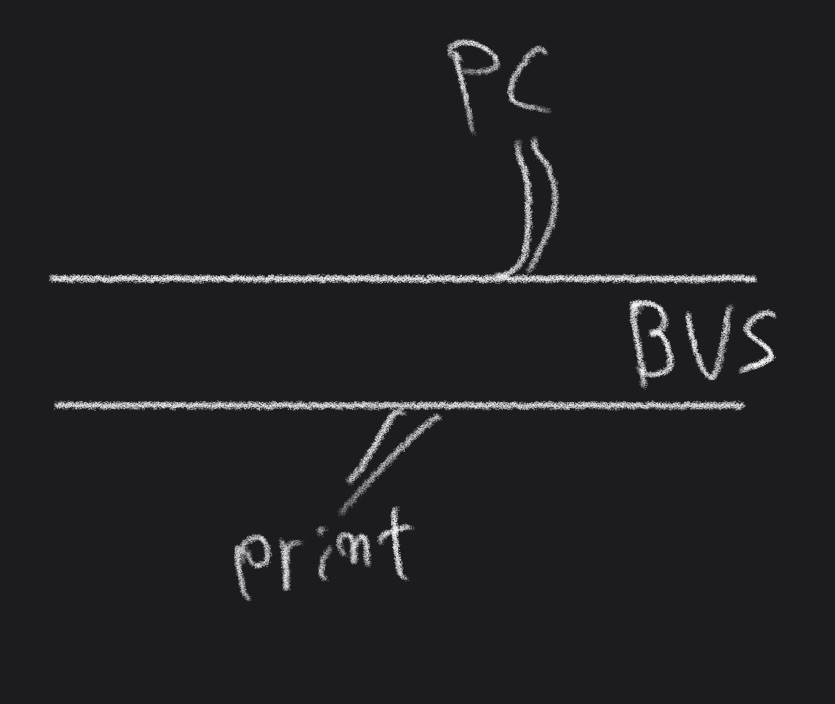 PC
BUS
print